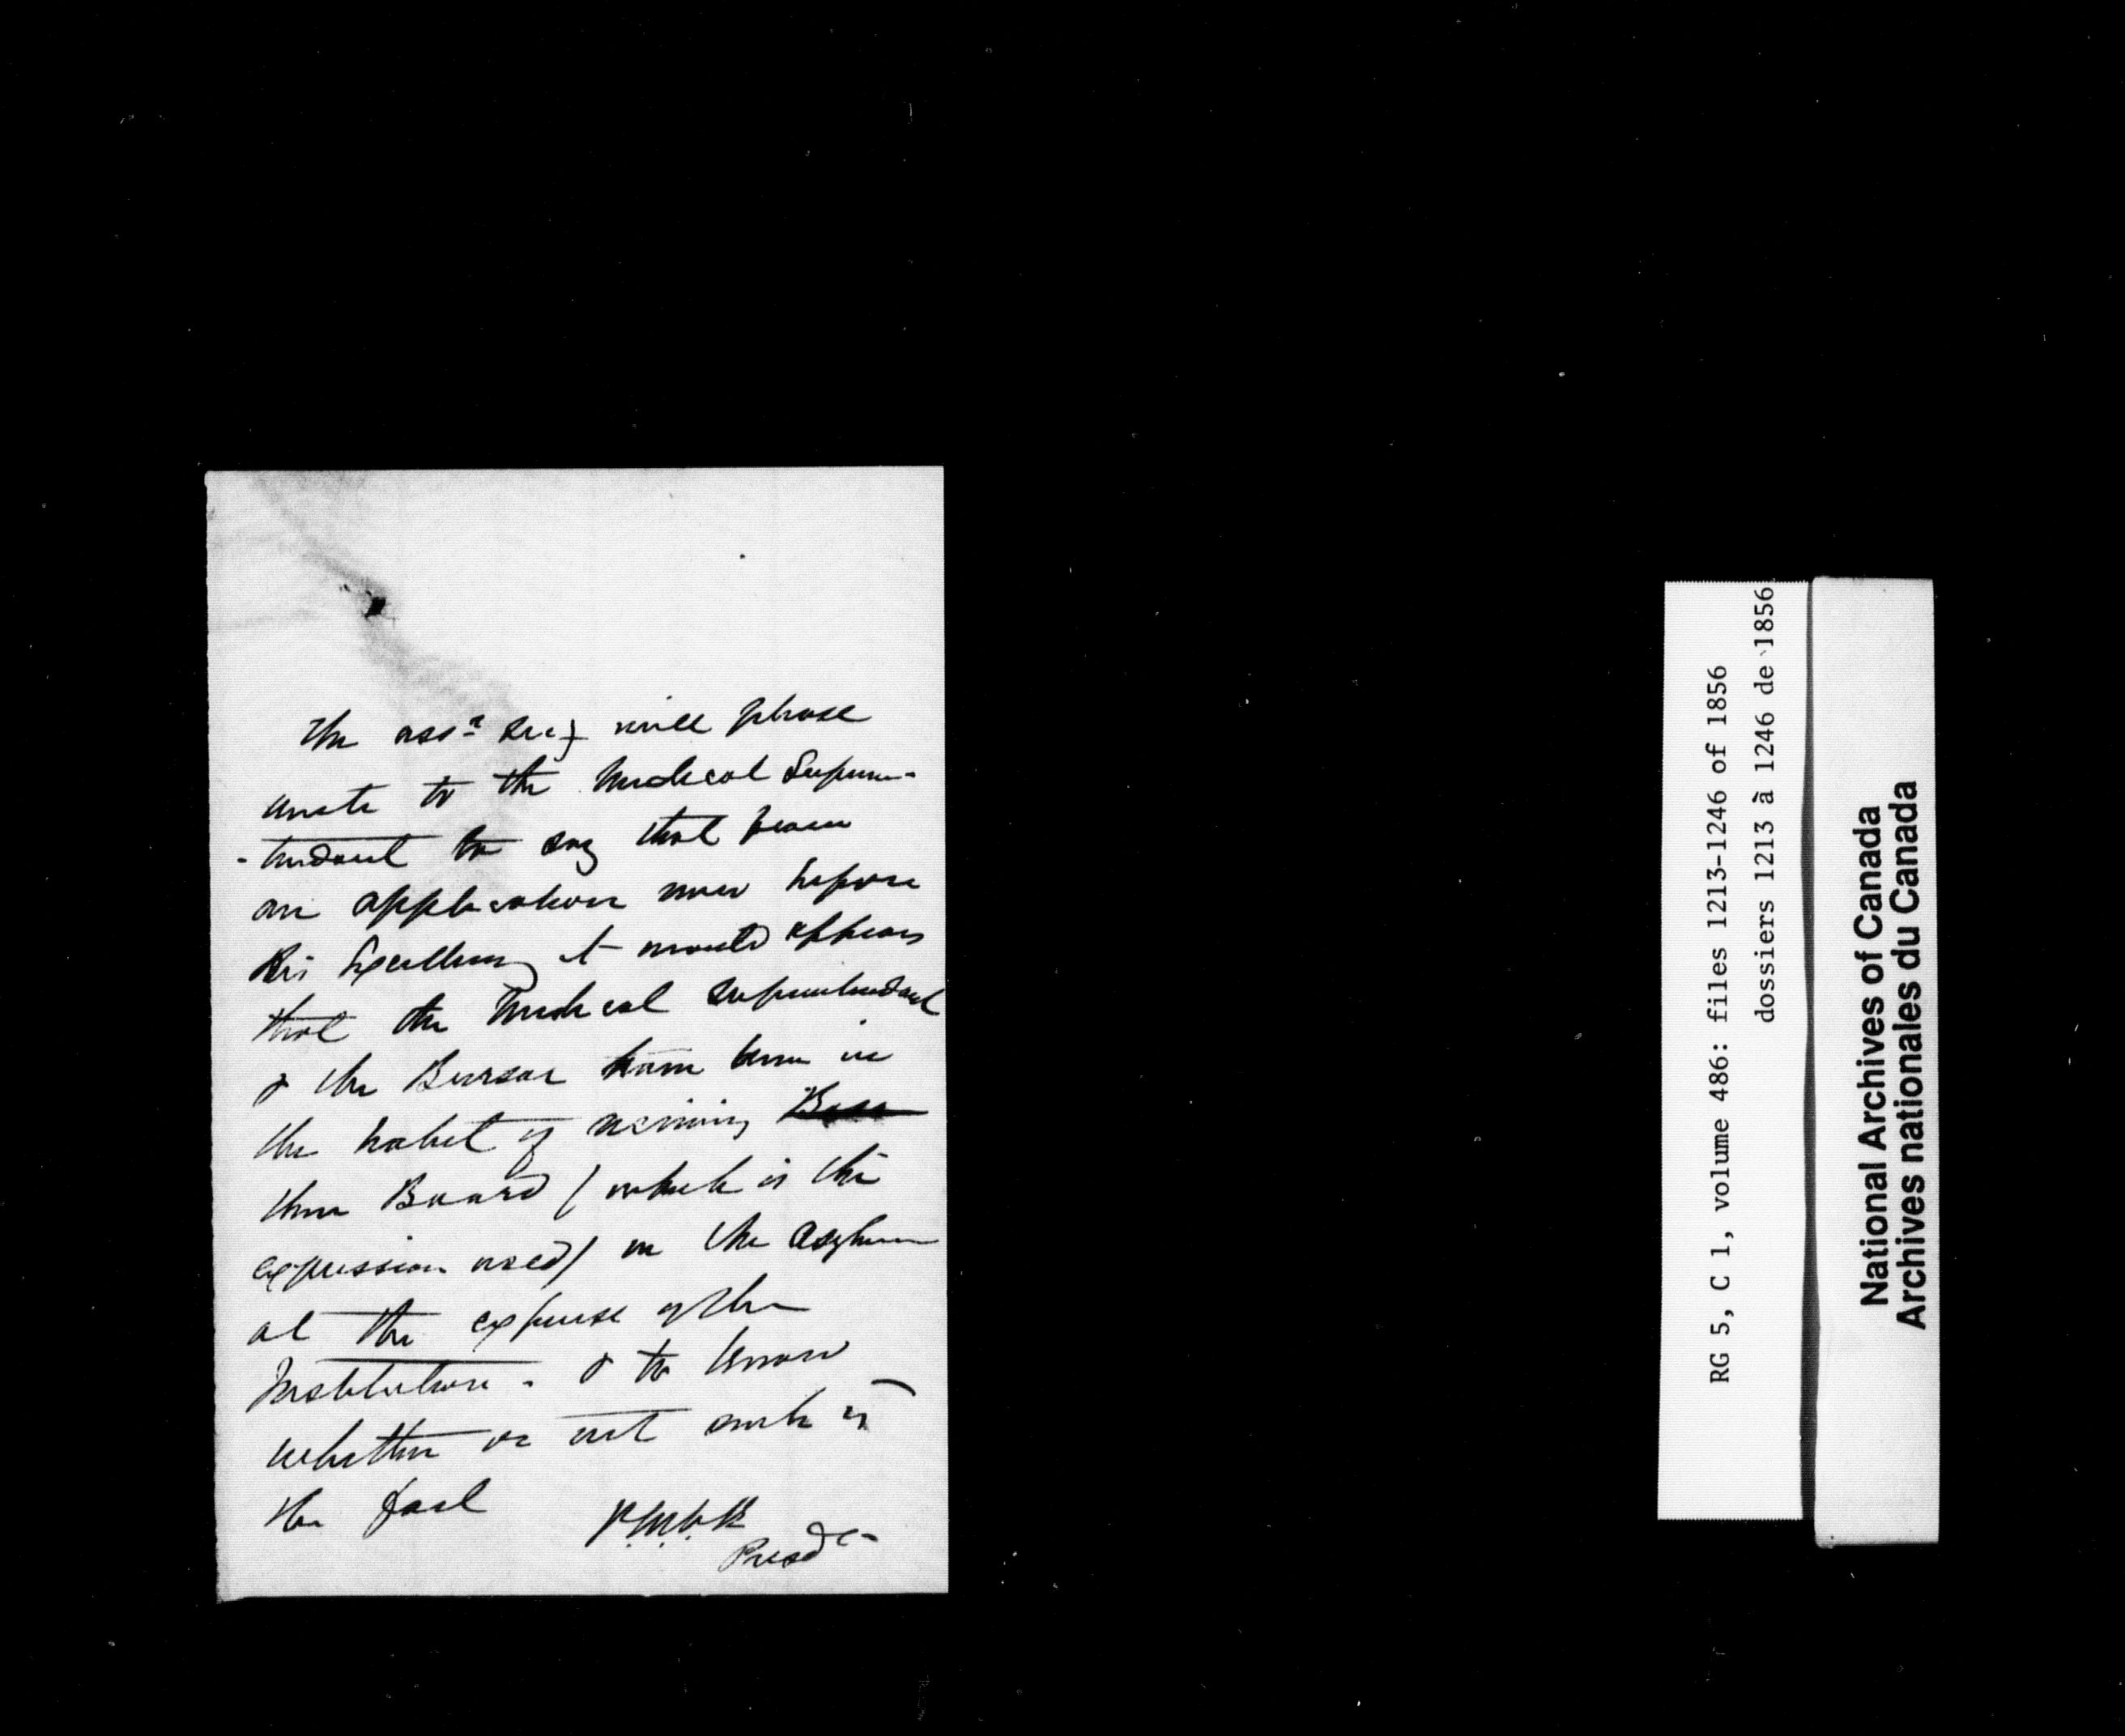 The ass.t Secy will please
write to the Medical Superin-
-tendent to say that from
an application now before
His Excellency it would appear
that the Medical Superintendent
& the Bursar have been in
the habit of receiving
their Board (which is the
expression used) in the Asylum
at the expense of the
Institution. & to know
whether or not such is
the fact
Presd Ce-
RG 5, C 1, volume 486: files 1213-1246 of 1856
dossiers 1213 à 1246 de 1856
National Archives of Canada
Archives nationales du Canada